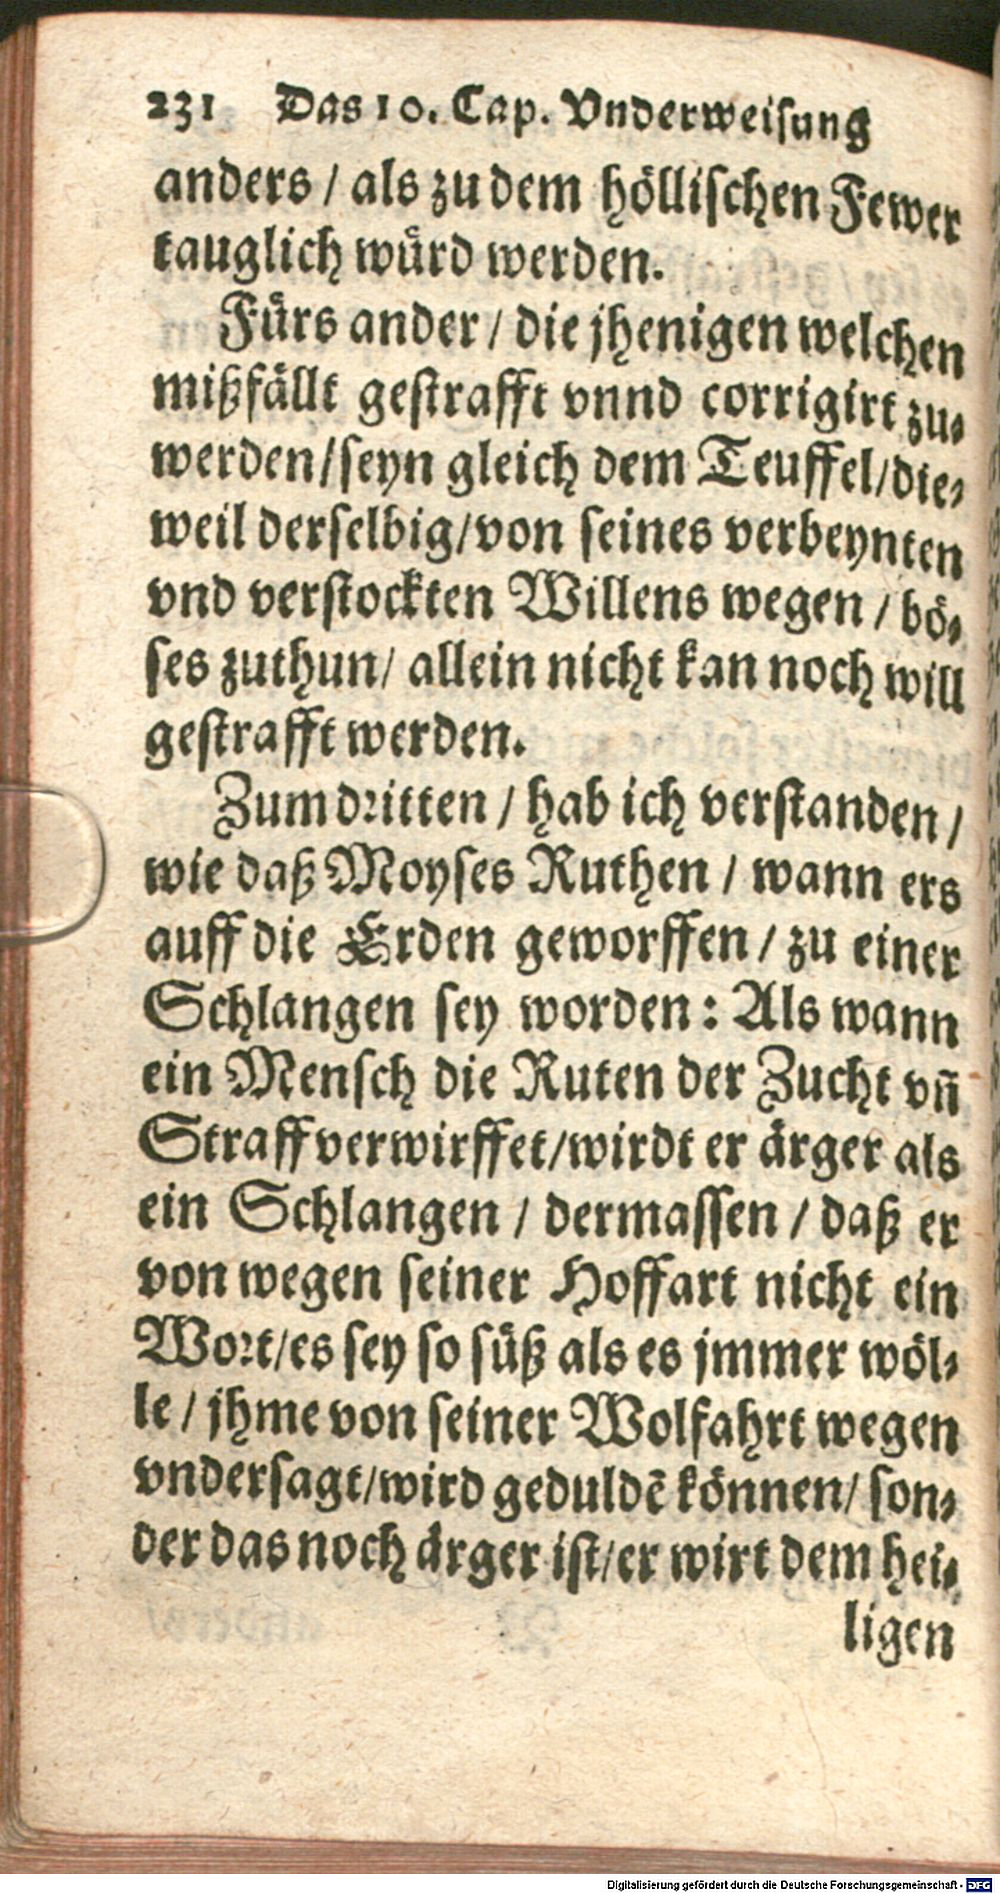 231 Das 10. Cap. Vnderweisung
anders / als zu dem höllischen Fewer
tauglich würd werden.
Fürs ander / die jhenigen welchen
mißfällt gestrafft vnnd corrigirt zu-
werden / seyn gleich dem Teuffel / die-
weil derselbig / von seines verbeynten
vnd verstockten Willens wegen / bö-
ses zuthun / allein nicht kan noch will
gestrafft werden.
Zum dritten / hab ich verstanden /
wie daß Moyses Ruthen / wann ers
auff die Erden geworffen / zu einer
Schlangen sey worden: Als wann
ein Mensch die Ruten der Zucht vñ
Straff verwirffet / wirdt er ärger als
ein Schlangen / dermassen / daß er
von wegen seiner Hoffart nicht ein
Wort / es sey so süß als es jmmer wöl-
le / jhme von seiner Wolfahrt wegen
vndersagt / wird geduldẽ können / son-
der das noch ärger ist / er wirt dem hei-
ligen
Digitalisierung gefördert durch die Deutsche Forschungsgemeinschaft - DFG